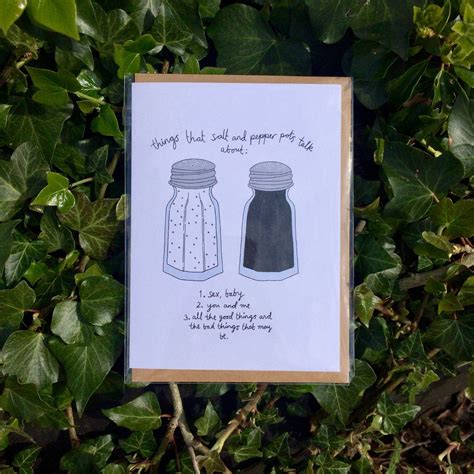 things that salt and pepper pots talk
about:
1. sex, baby
2. you and me
3. all the good things and
the bad things that may
be.